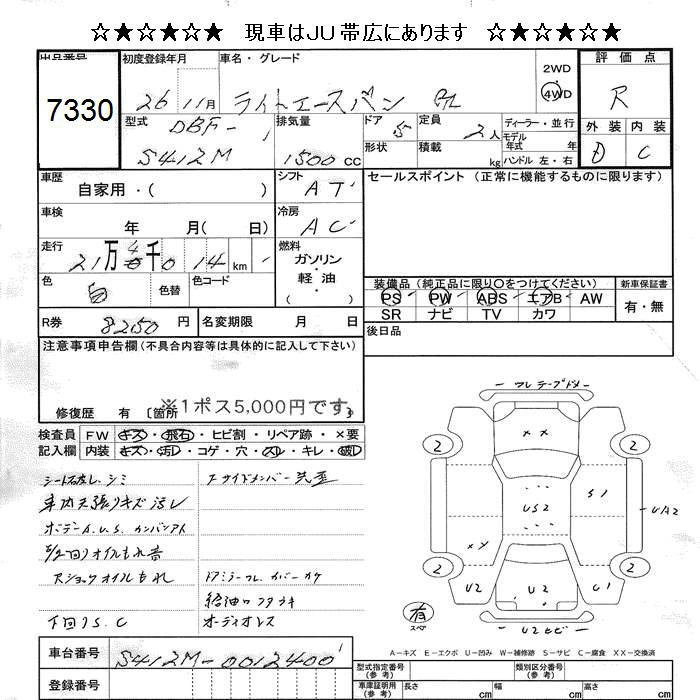 ☆★☆★☆★ 現車はJU帯広にあります ☆★☆★☆★
出品番号
7330
初度登録年月
26 11月
車名・グレード
ライトエースバン DL
2WD
4WD
評価点
R
外装 内装
D C
型式
DBF-
S412M
排気量
1500 cc
ドア
5
形状
定員
2人
積載
kg
ディーラー・並行
モデル
年式 年
ハンドル 左・右
車歴
自家用・( )
シフト
AT
セールスポイント(正常に機能するものに限ります)
車検
年 月( 日)
冷房
AC
走行
21万4千014km
燃料
ガソリン
・
軽油
( )
色
白
色替
色コード
装備品(純正品に限り○をつけてください)
PS PW ABS エアB AW
SR ナビ TV カワ
新車保証書
有・無
R券 8250円
名変期限 月 日
後日品
注意事項申告欄(不具合内容等は具体的に記入して下さい)
※1ポス5,000円です。
修復歴 有 〔箇所
検査員 FW キズ・飛石・ヒビ割・リペア跡・×要
記入欄 内装 キズ・汚レ・コゲ・穴・スレ・キレ・破レ
シート右破レ、シミ
車内天張りキズ汚レ
ボデーA.U.S.
オイルもれ音
Rショックオイルもれ
下回りS.C
Fサイドメンバー
ドアミラーフレ カバーカケ
給油口フタ
オーディオレス
フレテープドメ
××
2
2
2
2
US2
S1
UA2
×Y
U2
U2
U1
有
スペア
U2サビ
A-キズ E-エクボ U-凹み W-補修跡 S-サビ C-腐食 XX-交換済
車台番号 S412M-0012400
登録番号
型式指定番号
(参考)
類別区分番号
(参考)
車庫証明用
(参考)
長さ cm 幅 cm 高さ cm